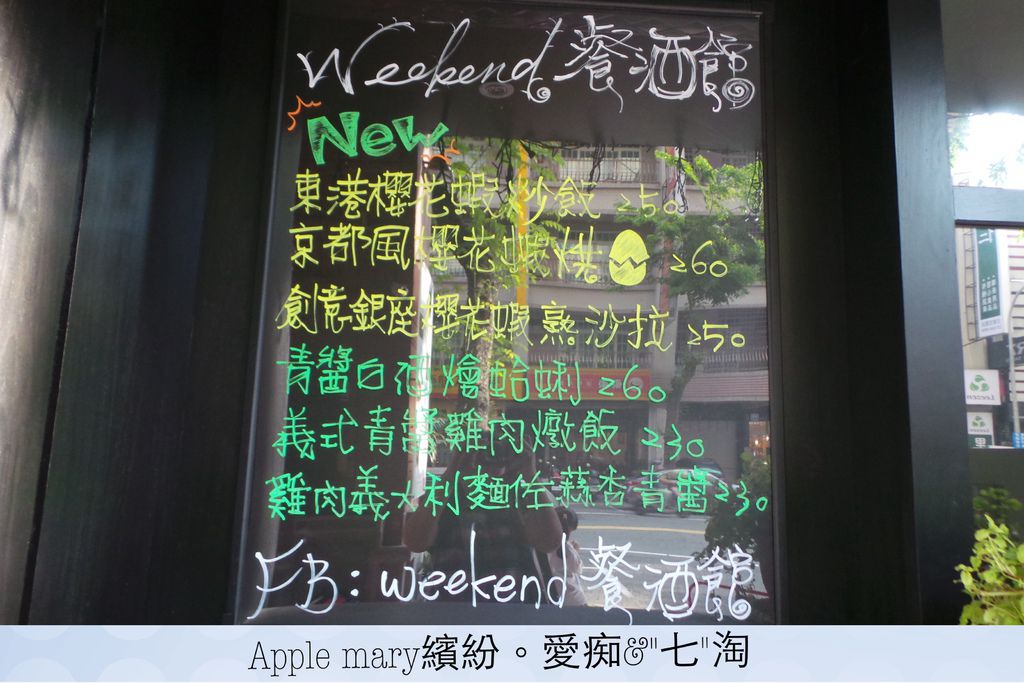 Weekend 餐酒館
New
東港櫻花蝦炒飯 250
京都風櫻花蝦烘 260
創意銀座櫻花蝦熟沙拉 250
青醬白酒燴蛤蜊 260
義式青醬雞肉燉飯 230
雞肉義大利麵佐蒜香青醬 230
FB: weekend 餐酒館
Apple mary繽紛。愛痴&"七"淘